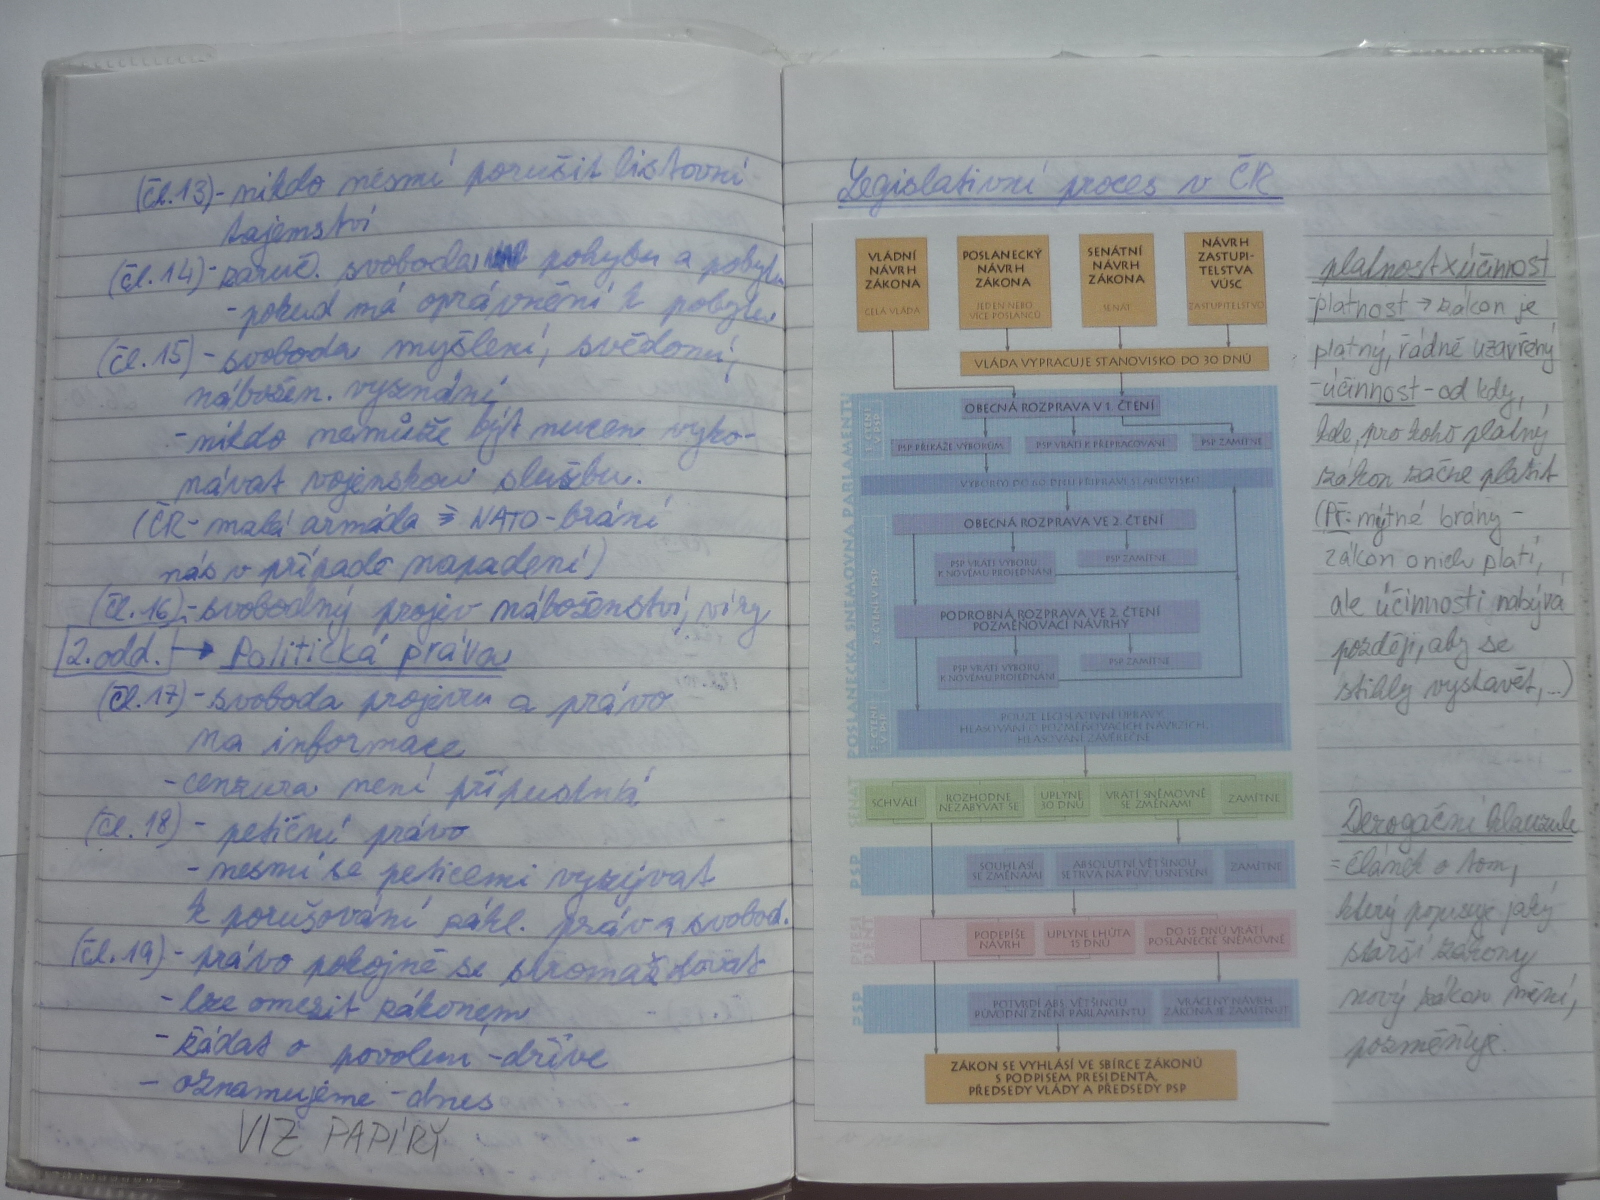 (Čl.13)- nikdo nesmí porušit listovní
tajemství
(Čl.14)- zaruč. svoboda pohybu a pobytu
- pokud má oprávnění k pobytu
(Čl.15)- svoboda myšlení, svědomí,
nábožen. vyznání
- nikdo nemůže být nucen vyko-
návat vojenskou službu.
(ČR- malá armáda → NATO-brání
nás v případě napadení)
(Čl.16)- svobodný projev náboženství, víry
2.odd. → Politická práva
(Čl.17)- svoboda projevu a právo
na informace
- cenzura není přípustná
(Čl.18) - petiční právo
- nesmí se peticemi vyzývat
k porušování zákl. práv a svobod.
(Čl.19)- právo pokojně se shromažďovat
- lze omezit zákonem
- žádat o povolení - dříve
- oznamujeme - dnes
VIZ PAPÍRY
Legislativní proces v ČR
VLÁDNÍ NÁVRH ZÁKONA
CELÁ VLÁDA
POSLANECKÝ NÁVRH ZÁKONA
JEDEN NEBO VÍCE POSLANCŮ
SENÁTNÍ NÁVRH ZÁKONA
SENÁT
NÁVRH ZASTUPI- TELSTVA VÚSC
ZASTUPITELSTVO
VLÁDA VYPRACUJE STANOVISKO DO 30 DNŮ
POSLANECKÁ SNĚMOVNA PARLAMENTU
1. ČTENÍ V PSP
OBECNÁ ROZPRAVA V 1. ČTENÍ
PSP PŘIKÁŽE VÝBORŮM
PSP VRÁTÍ K PŘEPRACOVÁNÍ
PSP ZAMÍTNE
VÝBOR(Y) DO 60 DNŮ PŘIPRAVÍ STANOVISKO
2. ČTENÍ V PSP
OBECNÁ ROZPRAVA VE 2. ČTENÍ
PSP VRÁTÍ VÝBORU
K NOVÉMU PROJEDNÁNÍ
PSP ZAMÍTNE
PODROBNÁ ROZPRAVA VE 2. ČTENÍ
POZMĚŇOVACÍ NÁVRHY
PSP VRÁTÍ VÝBORU
K NOVÉMU PROJEDNÁNÍ
PSP ZAMÍTNE
3. ČTENÍ V PSP
POUZE LEGISLATIVNÍ ÚPRAVY,
HLASOVÁNÍ O POZMĚŇOVACÍCH NÁVRZÍCH,
HLASOVÁNÍ ZÁVĚREČNÉ
SENÁT
SCHVÁLÍ
ROZHODNE NEZABÝVAT SE
UPLYNE 30 DNŮ
VRÁTÍ SNĚMOVNĚ SE ZMĚNAMI
ZAMÍTNE
PSP
SOUHLASÍ SE ZMĚNAMI
ABSOLUTNÍ VĚTŠINOU SETRVÁ NA PŮV. USNESENÍ
ZAMÍTNE
PRESIDENT
PODEPÍŠE NÁVRH
UPLYNE LHŮTA 15 DNŮ
DO 15 DNŮ VRÁTÍ POSLANECKÉ SNĚMOVNĚ
PSP
POTVRDÍ ABS. VĚTŠINOU
PŮVODNÍ ZNĚNÍ PARLAMENTU
VRÁCENÝ NÁVRH
ZÁKONA JE ZAMÍTNUT
ZÁKON SE VYHLÁSÍ VE SBÍRCE ZÁKONŮ
S PODPISEM PRESIDENTA,
PŘEDSEDY VLÁDY A PŘEDSEDY PSP
platnost x účinnost
- platnost → zákon je
platný, řádně uzavřený
- účinnost - od kdy,
kde, pro koho platný
zákon začne platit
(Př: mýtné brány -
zákon o nich platí,
ale účinnosti nabývá
později, aby se
stihly vystavět,...)
Derogační klauzule
= článek o tom,
který popisuje jaký
starší zákony
nový zákon mění,
pozměňuje.